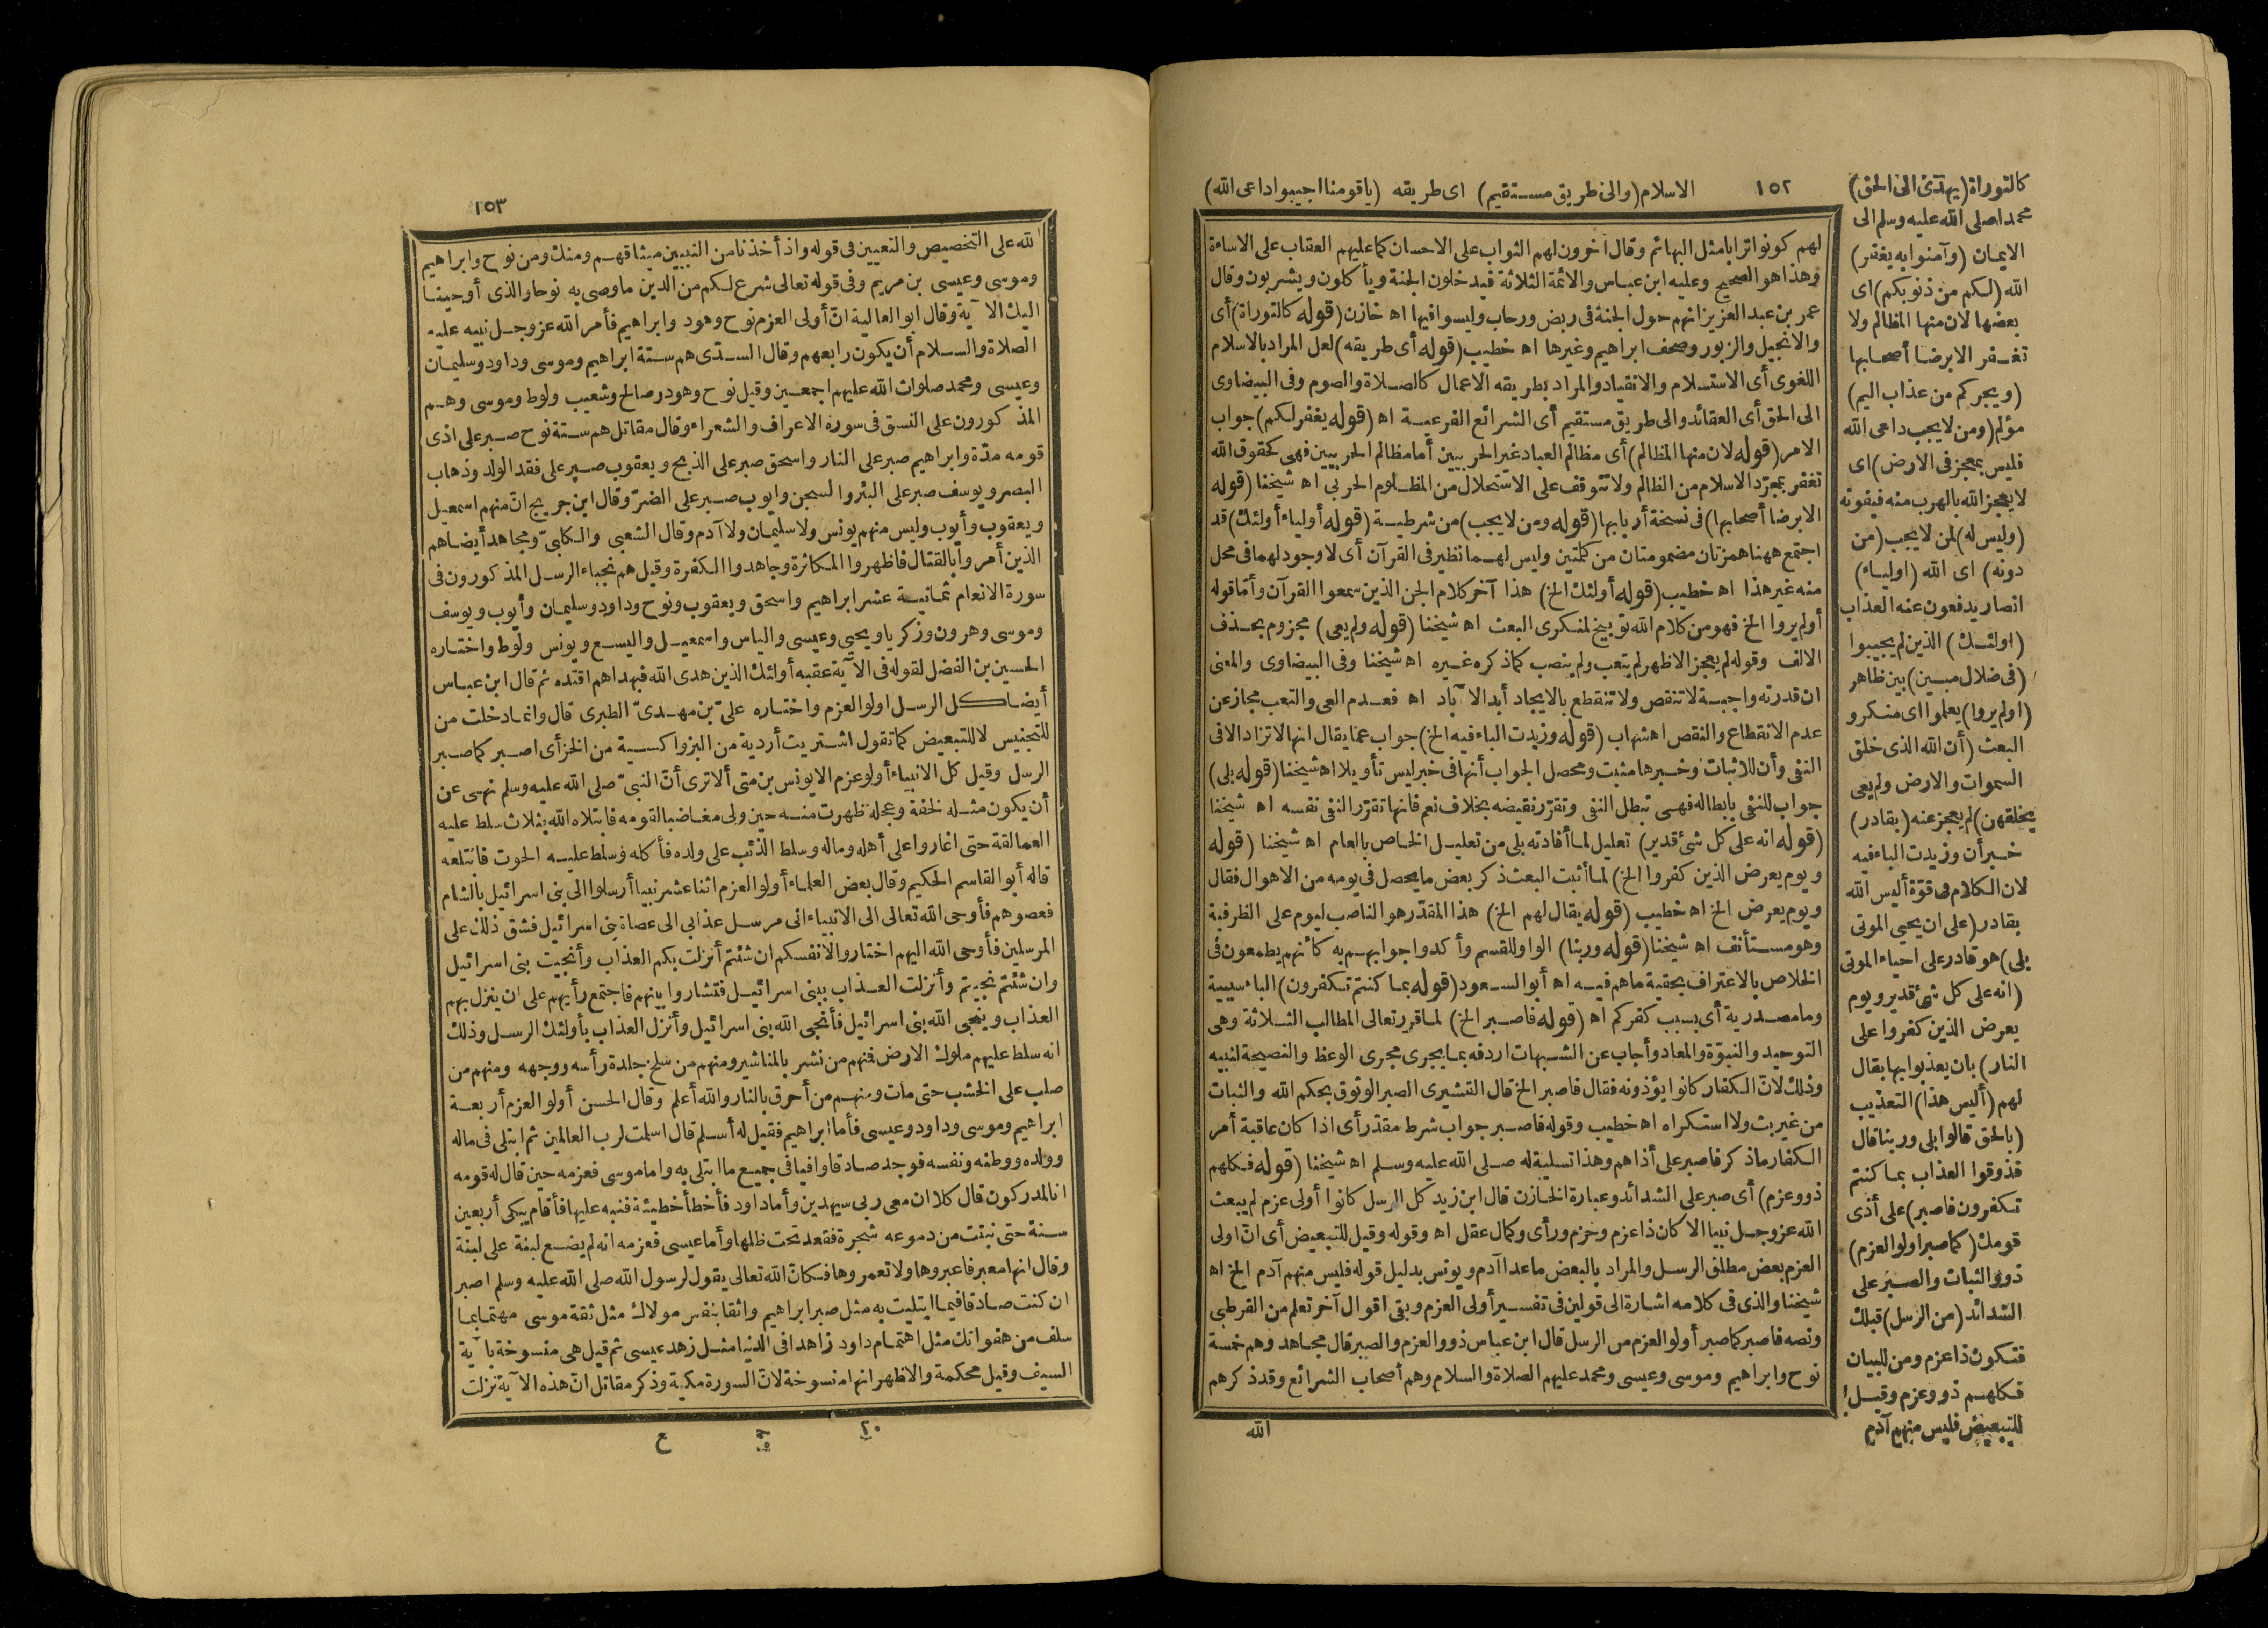 ١٥٢
الاسلام (والى طريق مستقيم) اى طريقه (ياقومنا اجيبوا داعى الله)
كالتوراة (يهدى الى الحق)
محمدا صلى الله عليه وسلم الى
الايمان (وآمنوا به يغفر)
الله (لكم من ذنوبكم) اى
بعضها لان منها المظالم ولا
تغفر الا برضا أصحابها
(ويجركم من عذاب اليم)
مؤلم (ومن لا يجب داعى الله
فليس بمعجز فى الارض) اى
لا يعجز الله بالهرب منه فيفوته
(وليس له) لمن لا يجب (من
دونه) اى الله (اولياء)
انصار يدفعون عنه العذاب
(اولئك) الذين لم يجيبوا
(فى ضلال مبين) بين ظاهر
(اولم يروا) يعلموا اى منكرو
البعث (أن الله الذى خلق
السموات والارض ولم يعى
بخلقهن) لم يعجز عنه (بقادر)
خبر أن وزيدت الباء فيه
لان الكلام فى قوة أليس الله
بقادر (على ان يحيى الموتى
بلى) هو قادر على احياء الموتى
(انه على كل شئ قدير ويوم
يعرض الذين كفروا على
النار) بان يعذبوا بها يقال
لهم (أليس هذا) التعذيب
(بالحق قالوا بلى وربنا قال
فذوقوا العذاب بما كنتم
تكفرون فاصبر) على أذى
قومك (كما صبر اولوا العزم)
ذووالثبات والصبر على
الشدائد (من الرسل) قبلك
فتكون ذا عزم ومن للبيان
فكلهم ذووعزم وقيل
للتبعيض فليس منهم آدم
لهم كونوا ترابا مثل البهائم وقال آخرون لهم الثواب على الاحسان كما عليهم العقاب على الاساءة
وهذا هو الصحيح وعليه ابن عباس والائمة الثلاثة فيدخلون الجنة ويأكلون ويشربون وقال
عمر بن عبد العزيز انهم حول الجنة فى ربض ورحاب وليسوا فيها اه خازن (قوله كالتوراة) أى
والانجيل والزبور وصحف ابراهيم وغيرها اه خطيب (قوله أى طريقه) لعل المراد بالاسلام
اللغوى أى الاستسلام والانقياد والمراد بطريقه الاعمال كالصلاة والصوم وفى البيضاوى
الى الحق أى العقائد والى طريق مستقيم أى الشرائع الفرعية اه (قوله يغفر لكم) جواب
الامر (قوله لان منها المظالم) أى مظالم العباد غير الحربيين أما مظالم الحربيين فهى كحقوق الله
تغفر بمجرّد الاسلام من الظالم ولا تتوقف على الاستحلال من المظلوم الحربى اه شيخنا (قوله
الا برضا أصحابها) فى نسخة أربابها (قوله ومن لا يجب) من شرطية (قوله أولياء أولئك) قد
اجتمع ههنا همزتان مضمومتان من كلمتين وليس لهما نظير فى القرآن أى لا وجود لهما فى محل
منه غير هذا اه خطيب (قوله أولئك الخ) هذا آخر كلام الجن الذين سمعوا القرآن وأما قوله
أولم يروا الخ فهو من كلام الله توبيخ لمنكرى البعث اه شيخنا (قوله ولم يعى) مجزوم بحذف
الالف وقوله لم يعجز الاظهر لم يتعب ولم ينصب كما ذكره غيره اه شيخنا وفى البيضاوى والمعنى
ان قدرته واجبة لا تنقص ولا تنقطع بالايجاد أبد الآباد اه فعدم العى والتعب مجاز عن
عدم الانقطاع والنقص اه شهاب (قوله وزيدت الباء فيه الخ) جواب عما يقال انها لا تزاد الا فى
النفى وأن للاثبات وخبرها مثبت ومحصل الجواب أنها فى خبر ليس تأويلا اه شيخنا (قوله بلى)
جواب للنفى بابطاله فهى تبطل النفى وتقرّر نقيضه بخلاف نعم فانها تقرّر النفى نفسه اه شيخنا
(قوله انه على كل شئ قدير) تعليل لما أفادته بلى من تعليل الخاص بالعام اه شيخنا (قوله
ويوم يعرض الذين كفروا الخ) لما أثبت البعث ذكر بعض ما يحصل فى يومه من الاهوال فقال
ويوم يعرض الخ اه خطيب (قوله يقال لهم الخ) هذا المقدّر هو الناصب ليوم على الظرفية
وهو مستأنف اه شيخنا (قوله وربنا) الواو للقسم وأكدوا جوابهم به كأنهم يطمعون فى
الخلاص بالاعتراف بحقية ما هم فيه اه أبو السعود (قوله بما كنتم تكفرون) الباء سببية
وما مصدرية أى بسبب كفركم اه (قوله فاصبر الخ) لما قرر تعالى المطالب الثلاثة وهى
التوحيد والنبوّة والمعاد وأجاب عن الشبهات اردفه بما يجرى مجرى الوعظ والنصيحة لنبيه
وذلك لانّ الكفار كانوا يؤذونه فقال فاصبر الخ قال القشيرى الصبر الوثوق بحكم الله والثبات
من غير بث ولا استكراه اه خطيب وقوله فاصبر جواب شرط مقدّر أى اذا كان عاقبة أمر
الكفار ماذكر فاصبر على أذاهم وهذا تسلية له صلى الله عليه وسلم اه شيخنا (قوله فكلهم
ذووعزم) أى صبر على الشدائد وعبارة الخازن قال ابن زيد كل الرسل كانوا أولى عزم لم يبعث
الله عز وجل نبيا الا كان ذا عزم وحزم ورأى وكمال عقل اه وقوله وقيل للتبعيض أى انّ اولى
العزم بعض مطلق الرسل والمراد بالبعض ما عدا آدم ويونس بدليل قوله فليس منهم آدم الخ اه
شيخنا والذى فى كلامه اشارة الى قولين فى تفسير أولى العزم وبقى اقوال آخر تعلم من القرطبى
ونصه فاصبر كما صبر أولو العزم من الرسل قال ابن عباس ذووالعزم والصبر قال مجاهد وهم خمسة
نوح وابراهيم وموسى وعيسى ومحمد عليهم الصلاة والسلام وهم أصحاب الشرائع وقد ذكرهم
الله
١٥٣
الله على التخصيص والتعيين فى قوله واذ أخذنا من النبيين ميثاقهم ومنك ومن نوح وابراهيم
وموسى وعيسى بن مريم وفى قوله تعالى شرع لكم من الدين ما وصى به نوحا والذى أوحينا
اليك الآية وقال ابو العالية انّ أولى العزم نوح وهود وابراهيم فأمر الله عز وجل نبيه عليه
الصلاة والسلام أن يكون رابعهم وقال السدّى هم ستة ابراهيم وموسى وداود وسليمان
وعيسى ومحمد صلوات الله عليهم اجمعين وقيل نوح وهود وصالح وشعيب ولوط وموسى وهم
المذكورون على النسق فى سورة الاعراف والشعراء وقال مقاتل هم ستة نوح صبر على اذى
قومه مدّة وابراهيم صبر على النار واسحق صبر على الذبح ويعقوب صبر على فقد الولد وذهاب
البصر ويوسف صبر على البئر والسجن وايوب صبر على الضرّ وقال ابن جريج انّ منهم اسمعيل
ويعقوب وأيوب وليس منهم يونس ولا سليمان ولا آدم وقال الشعبى والكلبىّ ومجاهد أيضا هم
الذين أمروا بالقتال فاظهروا المكاثرة وجاهدوا الكفرة وقيل هم نجباء الرسل المذكورون فى
سورة الانعام ثمانية عشر ابراهيم واسحق ويعقوب ونوح وداود وسليمان وأيوب ويوسف
وموسى وهرون وزكريا ويحيى وعيسى والياس واسمعيل واليسع ويونس ولوط واختاره
الحسين بن الفضل لقوله فى الآية عقبه أولئك الذين هدى الله فبهداهم اقتده ثم قال ابن عباس
أيضا كل الرسل اولو العزم واختاره علىّ بن مهدىّ الطبرى قال وانما دخلت من
للتجنيس لا للتبعيض كما تقول اشتريت أردية من البز واكسية من الخز أى اصبر كما صبر
الرسل وقيل كل الانبياء أولو عزم الا يونس بن متى ألا ترى أنّ النبىّ صلى الله عليه وسلم نهى عن
أن يكون مثله لخفة وعجلة ظهرت منه حين ولى مغاضبا لقومه فابتلاه الله بثلاث سلط عليه
العمالقة حتى اغاروا على أهله وماله وسلط الذئب على ولده فأكله وسلط عليه الحوت فابتلعه
قاله أبو القاسم الحكيم وقال بعض العلماء أولو العزم اثنا عشر نبيا أرسلوا الى بنى اسرائيل بالشام
فعصوهم فأوحى الله تعالى الى الانبياء انى مرسل عذابى الى عصاة بنى اسرائيل فشق ذلك على
المرسلين فأوحى الله اليهم اختاروا لانفسكم ان شئتم أنزلت بكم العذاب وأنجيت بنى اسرائيل
وان شئتم نجيتكم وأنزلت العذاب ببنى اسرائيل فتشاوروا بينهم فاجتمع رأيهم على ان ينزل بهم
العذاب وينجى الله بنى اسرائيل فأنجى الله بنى اسرائيل وأنزل العذاب بأولئك الرسل وذلك
انه سلط عليهم ملوك الارض فمنهم من نشر بالمناشير ومنهم من سلخ جلدة رأسه ووجهه ومنهم من
صلب على الخشب حتى مات ومنهم من أحرق بالنار والله أعلم وقال الحسن أولو العزم أربعة
ابراهيم وموسى وداود وعيسى فأما ابراهيم فقيل له أسلم قال اسلمت لرب العالمين ثم ابتلى فى ماله
وولده ووطنه ونفسه فوجد صادقا وافيا فى جميع ما ابتلى به واما موسى فعزمه حين قال له قومه
انا لمدركون قال كلا ان معى ربى سيهدين وأما داود فأخطأ خطيئة فنبه عليها فأقام يبكى أربعين
سنة حتى نبتت من دموعه شجرة فقعد تحت ظلها وأما عيسى فعزمه انه لم يضع لبنة على لبنة
وقال انها معبر فاعبروها ولا تعمروها فكانّ الله تعالى يقول لرسول الله صلى الله عليه وسلم اصبر
ان كنت صادقا فيما ابتليت به مثل صبر ابراهيم واثقا بنفس مولاك مثل ثقة موسى مهتما بما
سلف من هفواتك مثل اهتمام داود زاهدا فى الدنيا مثل زهد عيسى ثم قيل هى منسوخة بآية
السيف وقيل محكمة والاظهر انها منسوخة لانّ السورة مكية وذكر مقاتل انّ هذه الآية نزلت
٢٠
ع